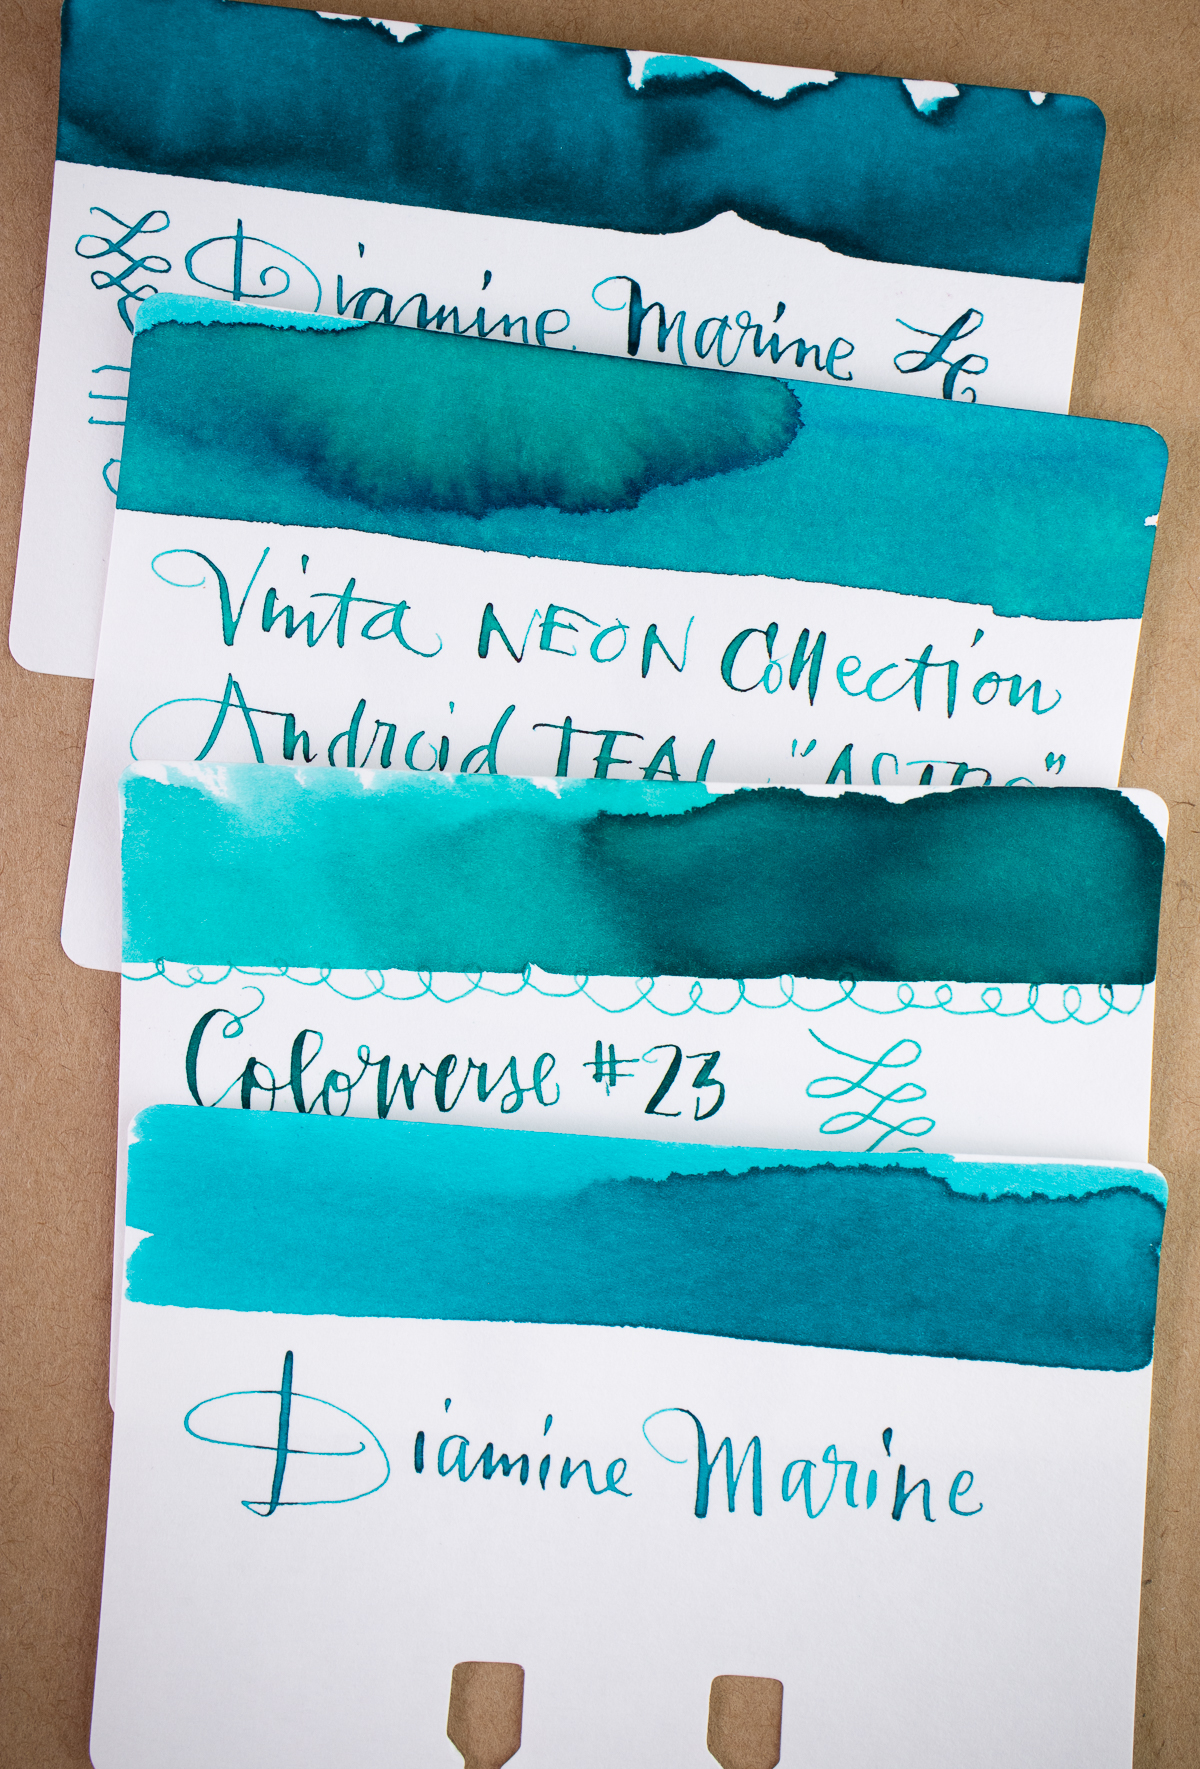 Diamine Marine
Vinta NEON Collection
Android TEAL "ASTRO"
Colorverse #23
Diamine Marine